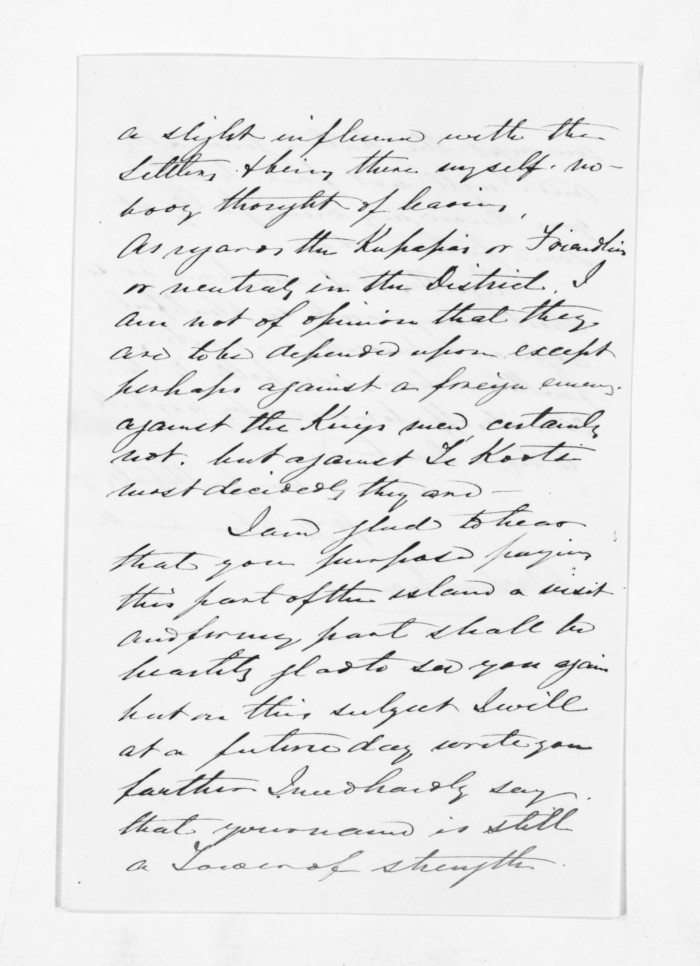 a slight influence with the
Settlers & being there myself no-
body thought of leaving,
As regards the Kupapas or Friendlies
or neutrals in the District, I
am not of opinion that they
are to be depended upon except
perhaps against a foreign enemy.
against the Kings men certainly
not. but against Te Kooti
most decidedly they are —
I am glad to hear
that you purpose paying
this part of the island a visit
and for my part shall be
heartily glad to see you again
but on this subject I will
at a future day write you
further I need hardly say.
that your name is still
a Tower of strength.